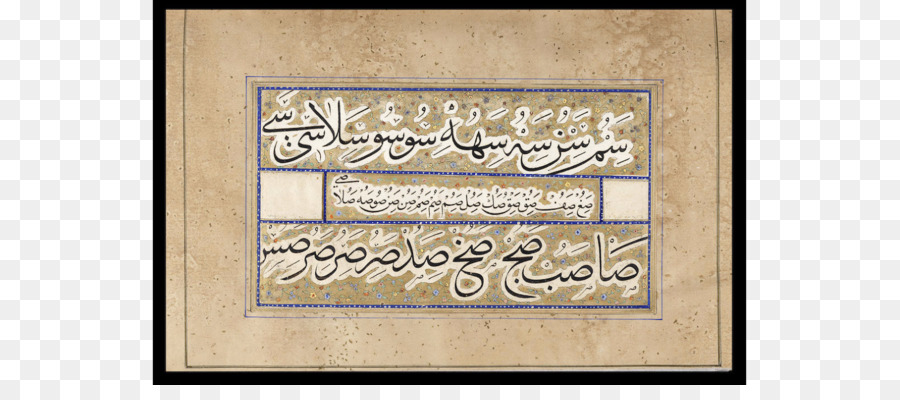 سَمُ سَنُ سَهُ سَهُهْ سُو سُو سَلا سى سَے
صَعُ صَفُ صَقُ صَوُ صَكُ صَلُ صَمُ صَمُ صَمُ صَنُ صَنُ صُو صَهُ صَلا صے
صَا صَبُ صَجُ صَخُ صَدُ صَرُ صَرُ صَرُ صَسُ